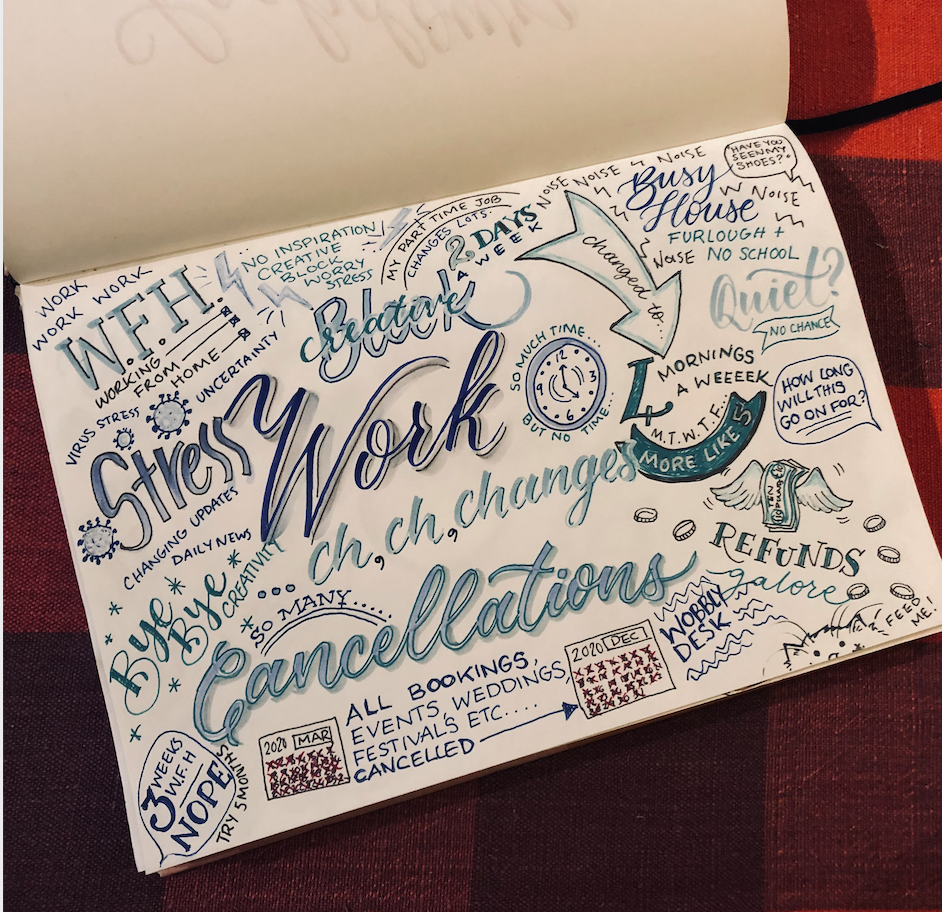 WORK
WORK
WORK
WORK
W.F.H.
WORKING
FROM
HOME
NO INSPIRATION
CREATIVE
BLOCK
WORRY
STRESS
creative
Block
MY PART TIME JOB
CHANGES LOTS.
2 DAYS
A WEEK
changed to...
NOISE
NOISE
NOISE
NOISE
NOISE
Busy
House
"HAVE YOU
SEEN MY
SHOES?"
FURLOUGH +
NO SCHOOL
Quiet?
NO CHANCE
UNCERTAINTY
VIRUS STRESS
Stress
CHANGING UPDATES
DAILY NEWS
Work
SO MUCH TIME...
12
3
6
9
BUT NO TIME...
4 MORNINGS
A WEEEEK
M.T.W.T.F...
MORE LIKE 5
HOW LONG
WILL THIS
GO ON FOR?
ch, ch, changes
...
Bye
Bye
CREATIVITY
SO MANY....
Cancellations
REFUNDS
galore
WOBBLY
DESK
FEED
ME!
2020 MAR
ALL BOOKINGS,
EVENTS, WEDDINGS,
FESTIVALS ETC....
CANCELLED
2020 DEC
3 WEEKS
W.F.H
NOPE!
TRY 5 MONTHS